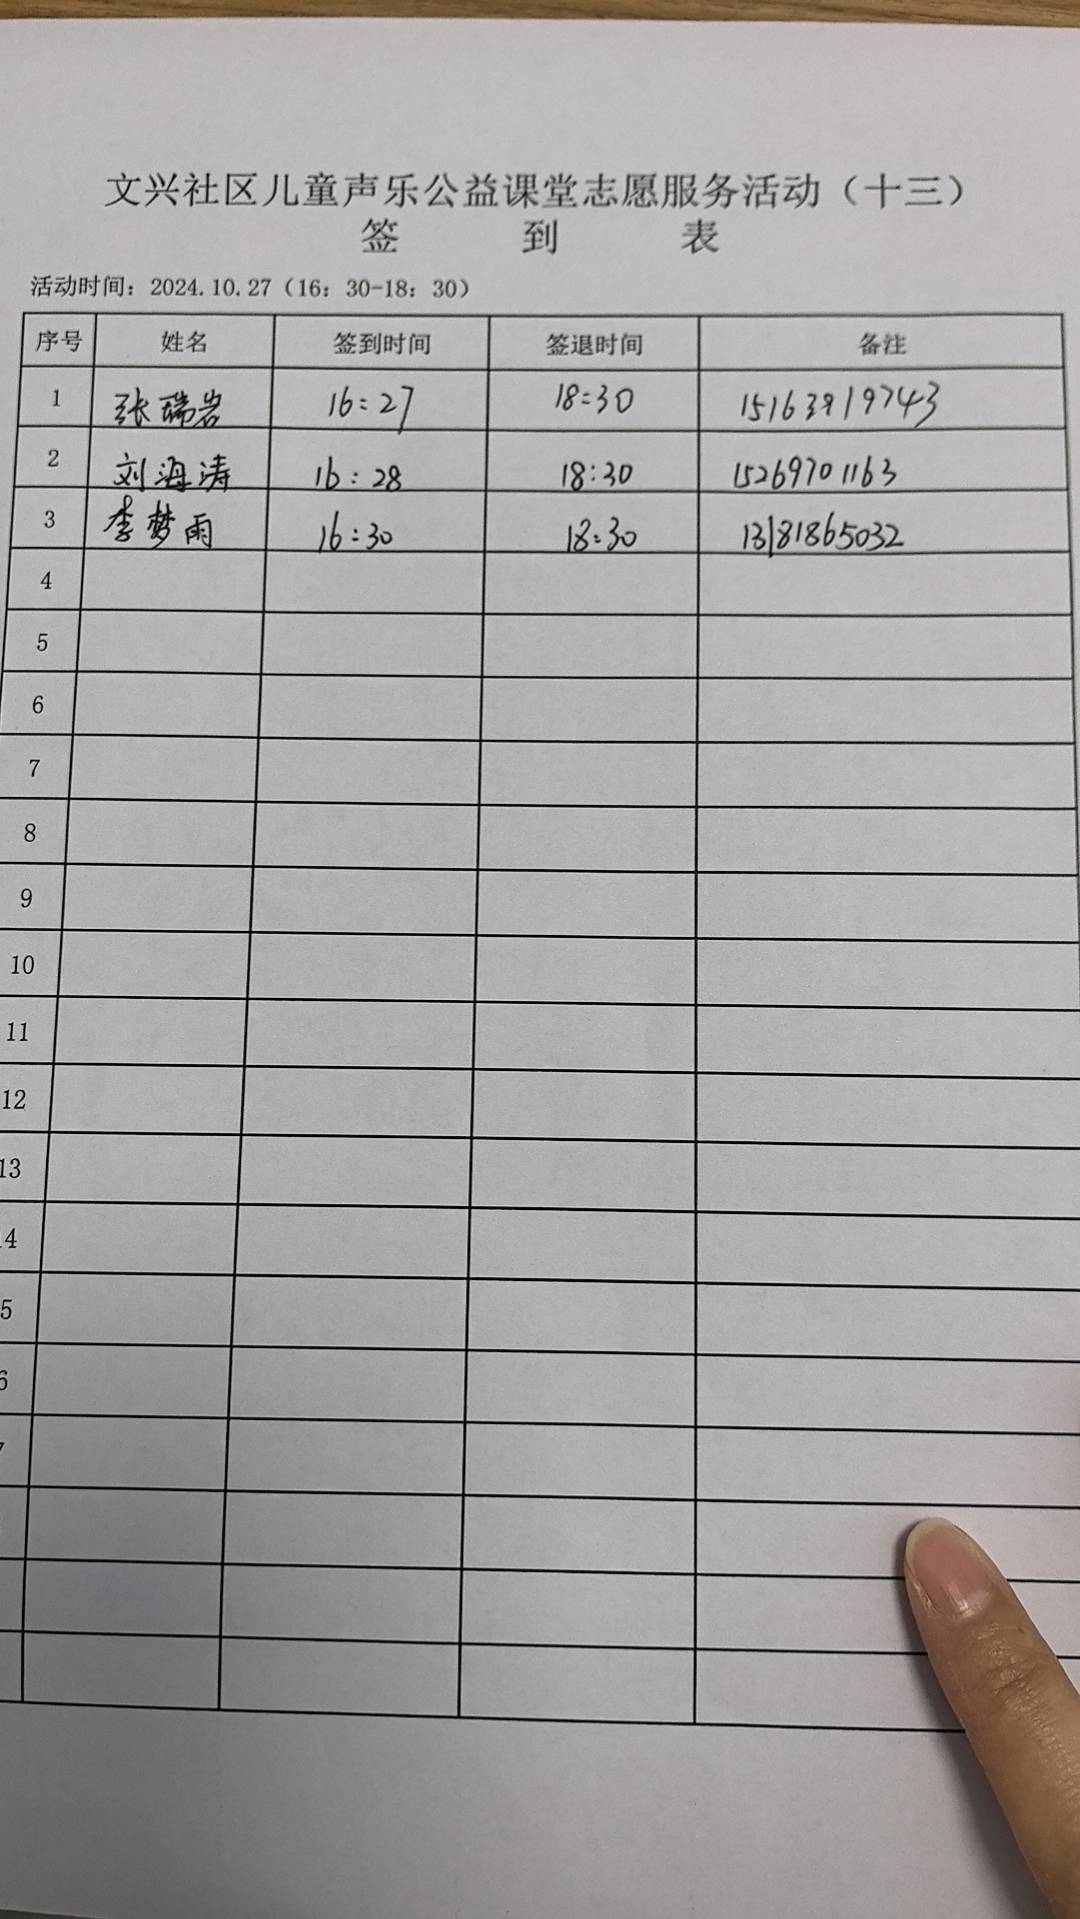 文兴社区儿童声乐公益课堂志愿服务活动（十三）
签 到 表
活动时间：2024.10.27（16：30-18：30）
序号 姓名 签到时间 签退时间 备注
1 张瑞岩 16:27 18:30 15163919743
2 刘海涛 16:28 18:30 15269701163
3 李梦雨 16:30 18:30 13181865032
4
5
6
7
8
9
10
11
12
13
4
5
6